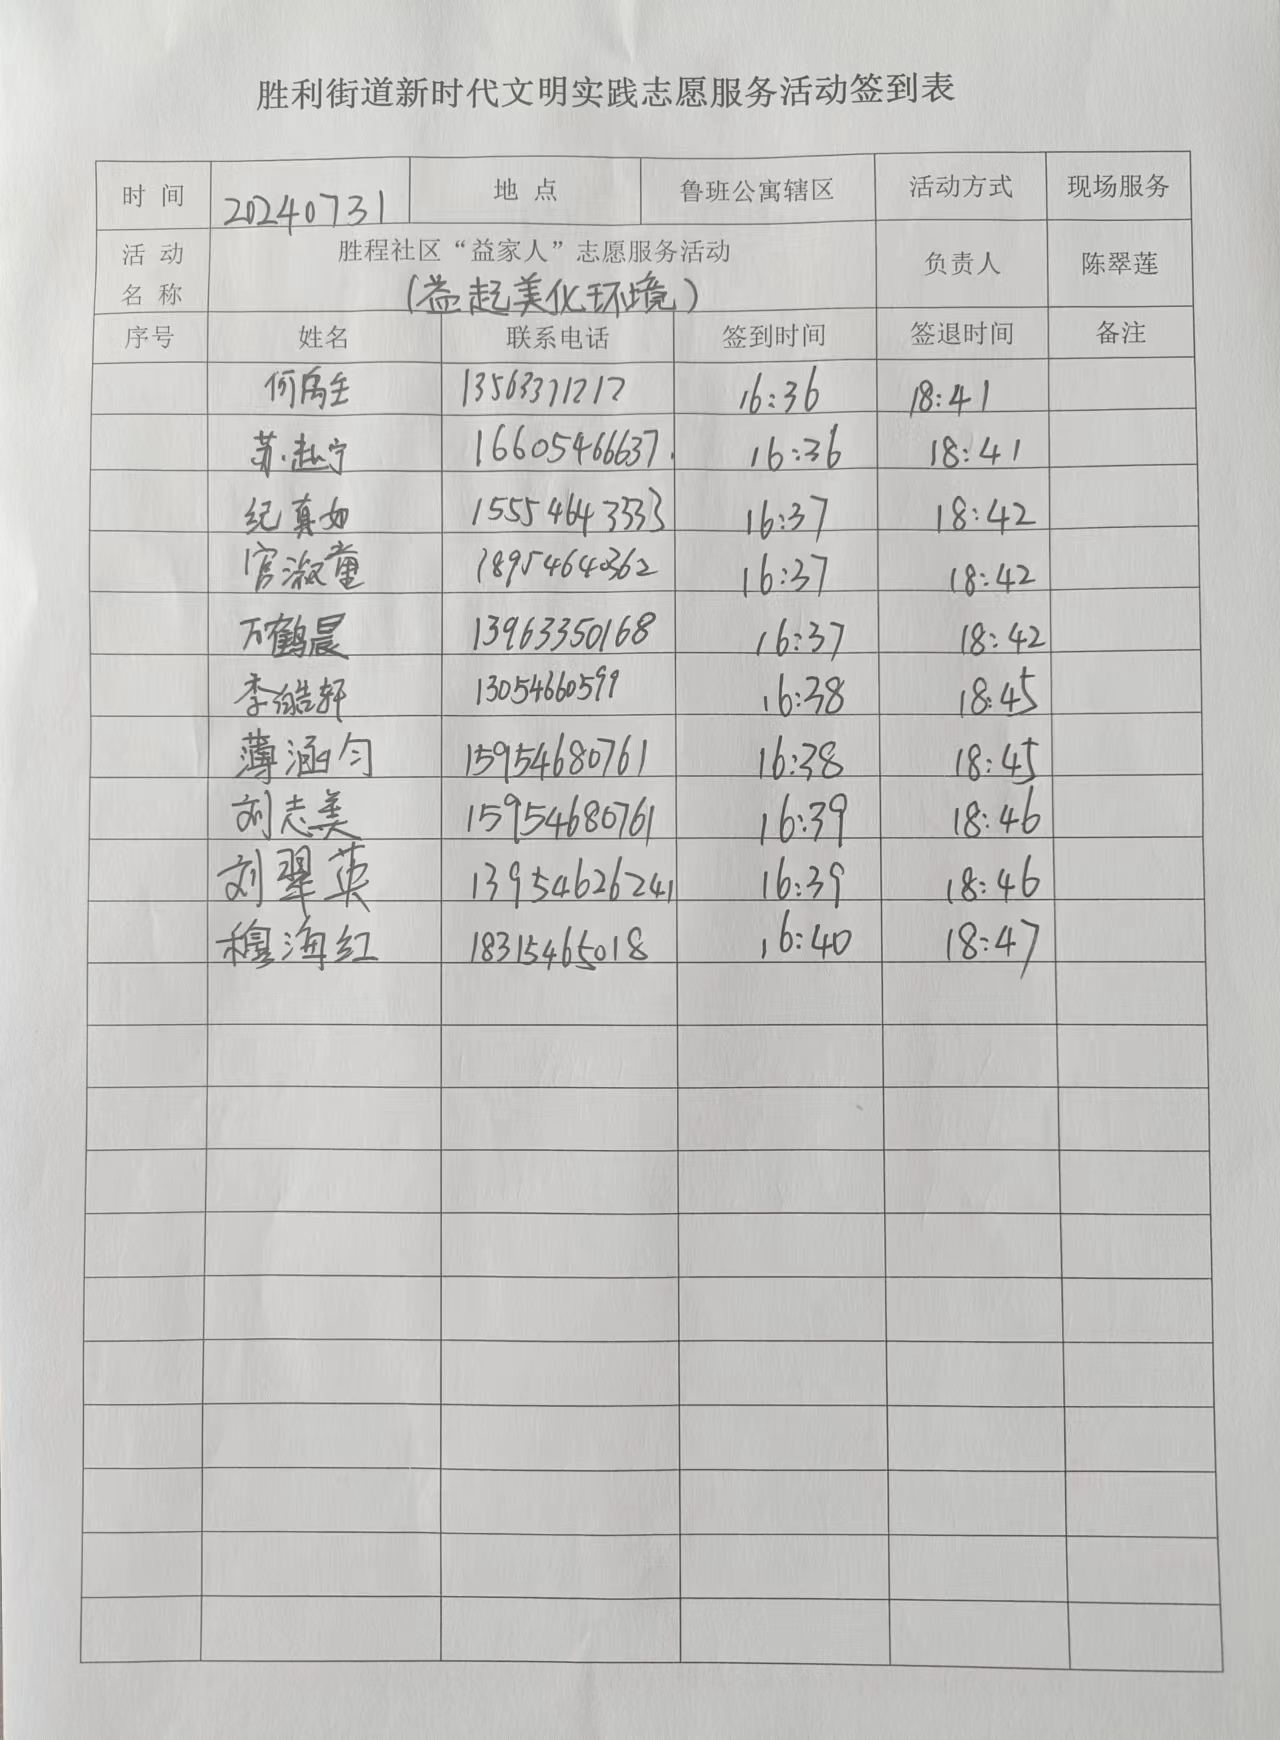 胜利街道新时代文明实践志愿服务活动签到表
时 间 20240731 地 点 鲁班公寓辖区 活动方式 现场服务
活 动 名 称 胜程社区“益家人”志愿服务活动 负责人 陈翠莲
(益起美化环境)
序号 姓名 联系电话 签到时间 签退时间 备注
何禹 13563371212 16:36 18:41
苏赵宁 16605466637 16:36 18:41
纪真如 15554643533 16:37 18:42
官淑童 18954640362 16:37 18:42
万鹤晨 13963350168 16:37 18:42
李皓轩 13054660599 16:38 18:45
薄涵匀 15954680761 16:38 18:45
刘志美 15954680761 16:39 18:46
刘翠英 13954626241 16:39 18:46
穆海红 18315465018 16:40 18:47